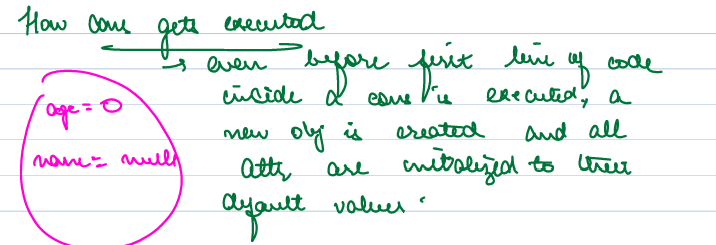 How cons gets executed
→ even before first line of code
inside a cons is executed, a
new obj is created and all
atts are initialized to their
default values.
age = 0
name = null